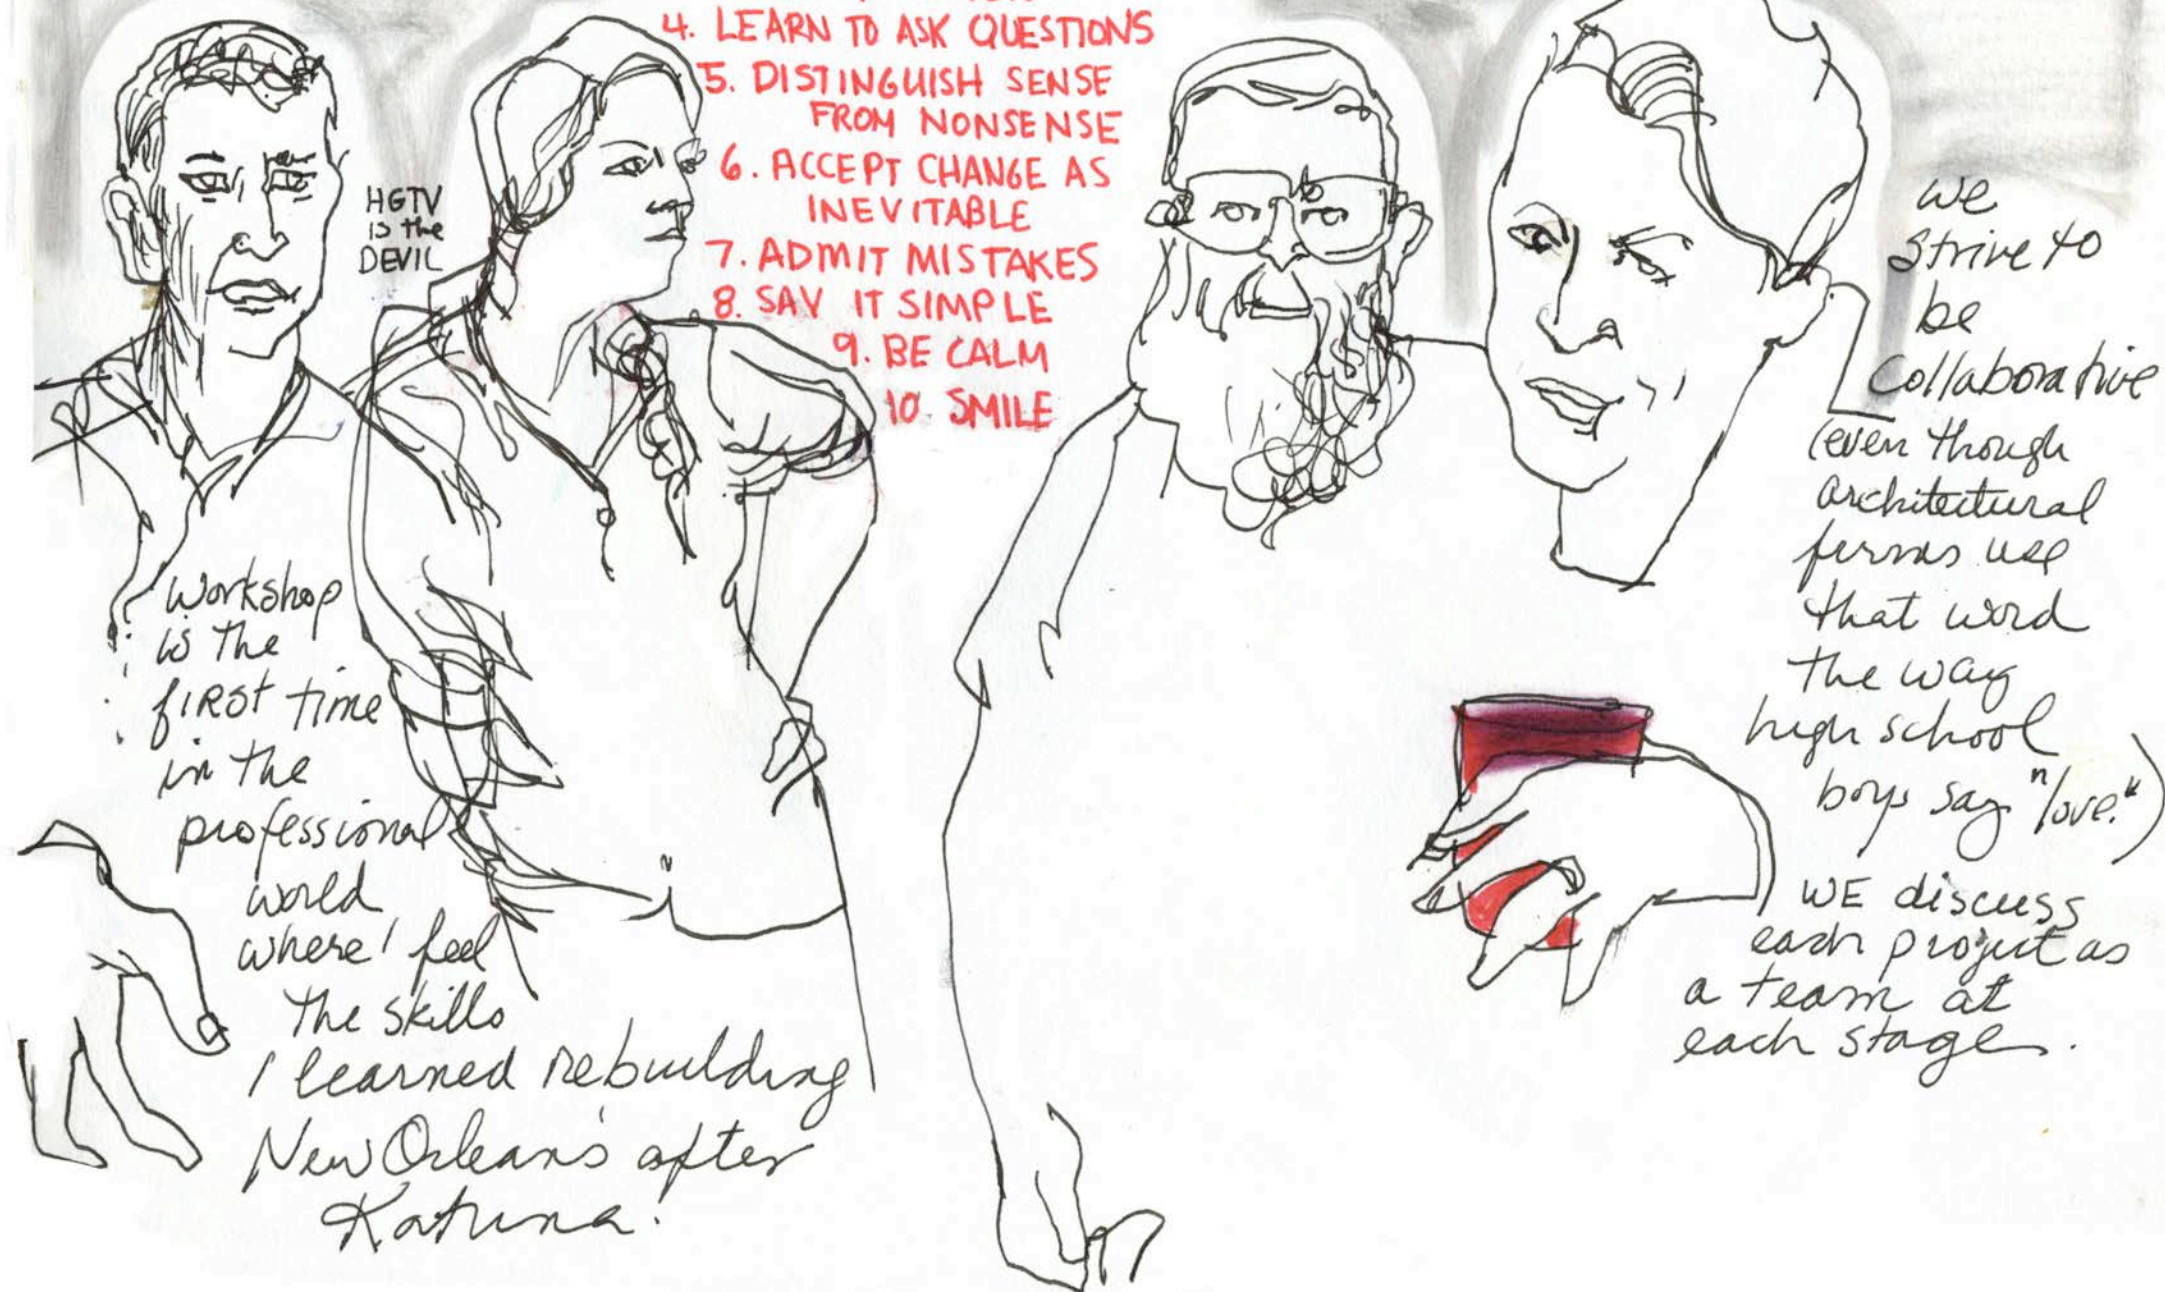 4. LEARN TO ASK QUESTIONS
5. DISTINGUISH SENSE
FROM NONSENSE
6. ACCEPT CHANGE AS
INEVITABLE
7. ADMIT MISTAKES
8. SAY IT SIMPLE
9. BE CALM
10. SMILE
HGTV
is the
DEVIL
Workshop
is the
fiRst time
in the
professional
world
where I feel
the skills
I learned rebuilding
New Orleans after
Katrina.
we
strive to
be
collaborative
(even though
architectural
firms use
that word
the way
high school
boys say "love.")
WE discuss
each project as
a team at
each stage.